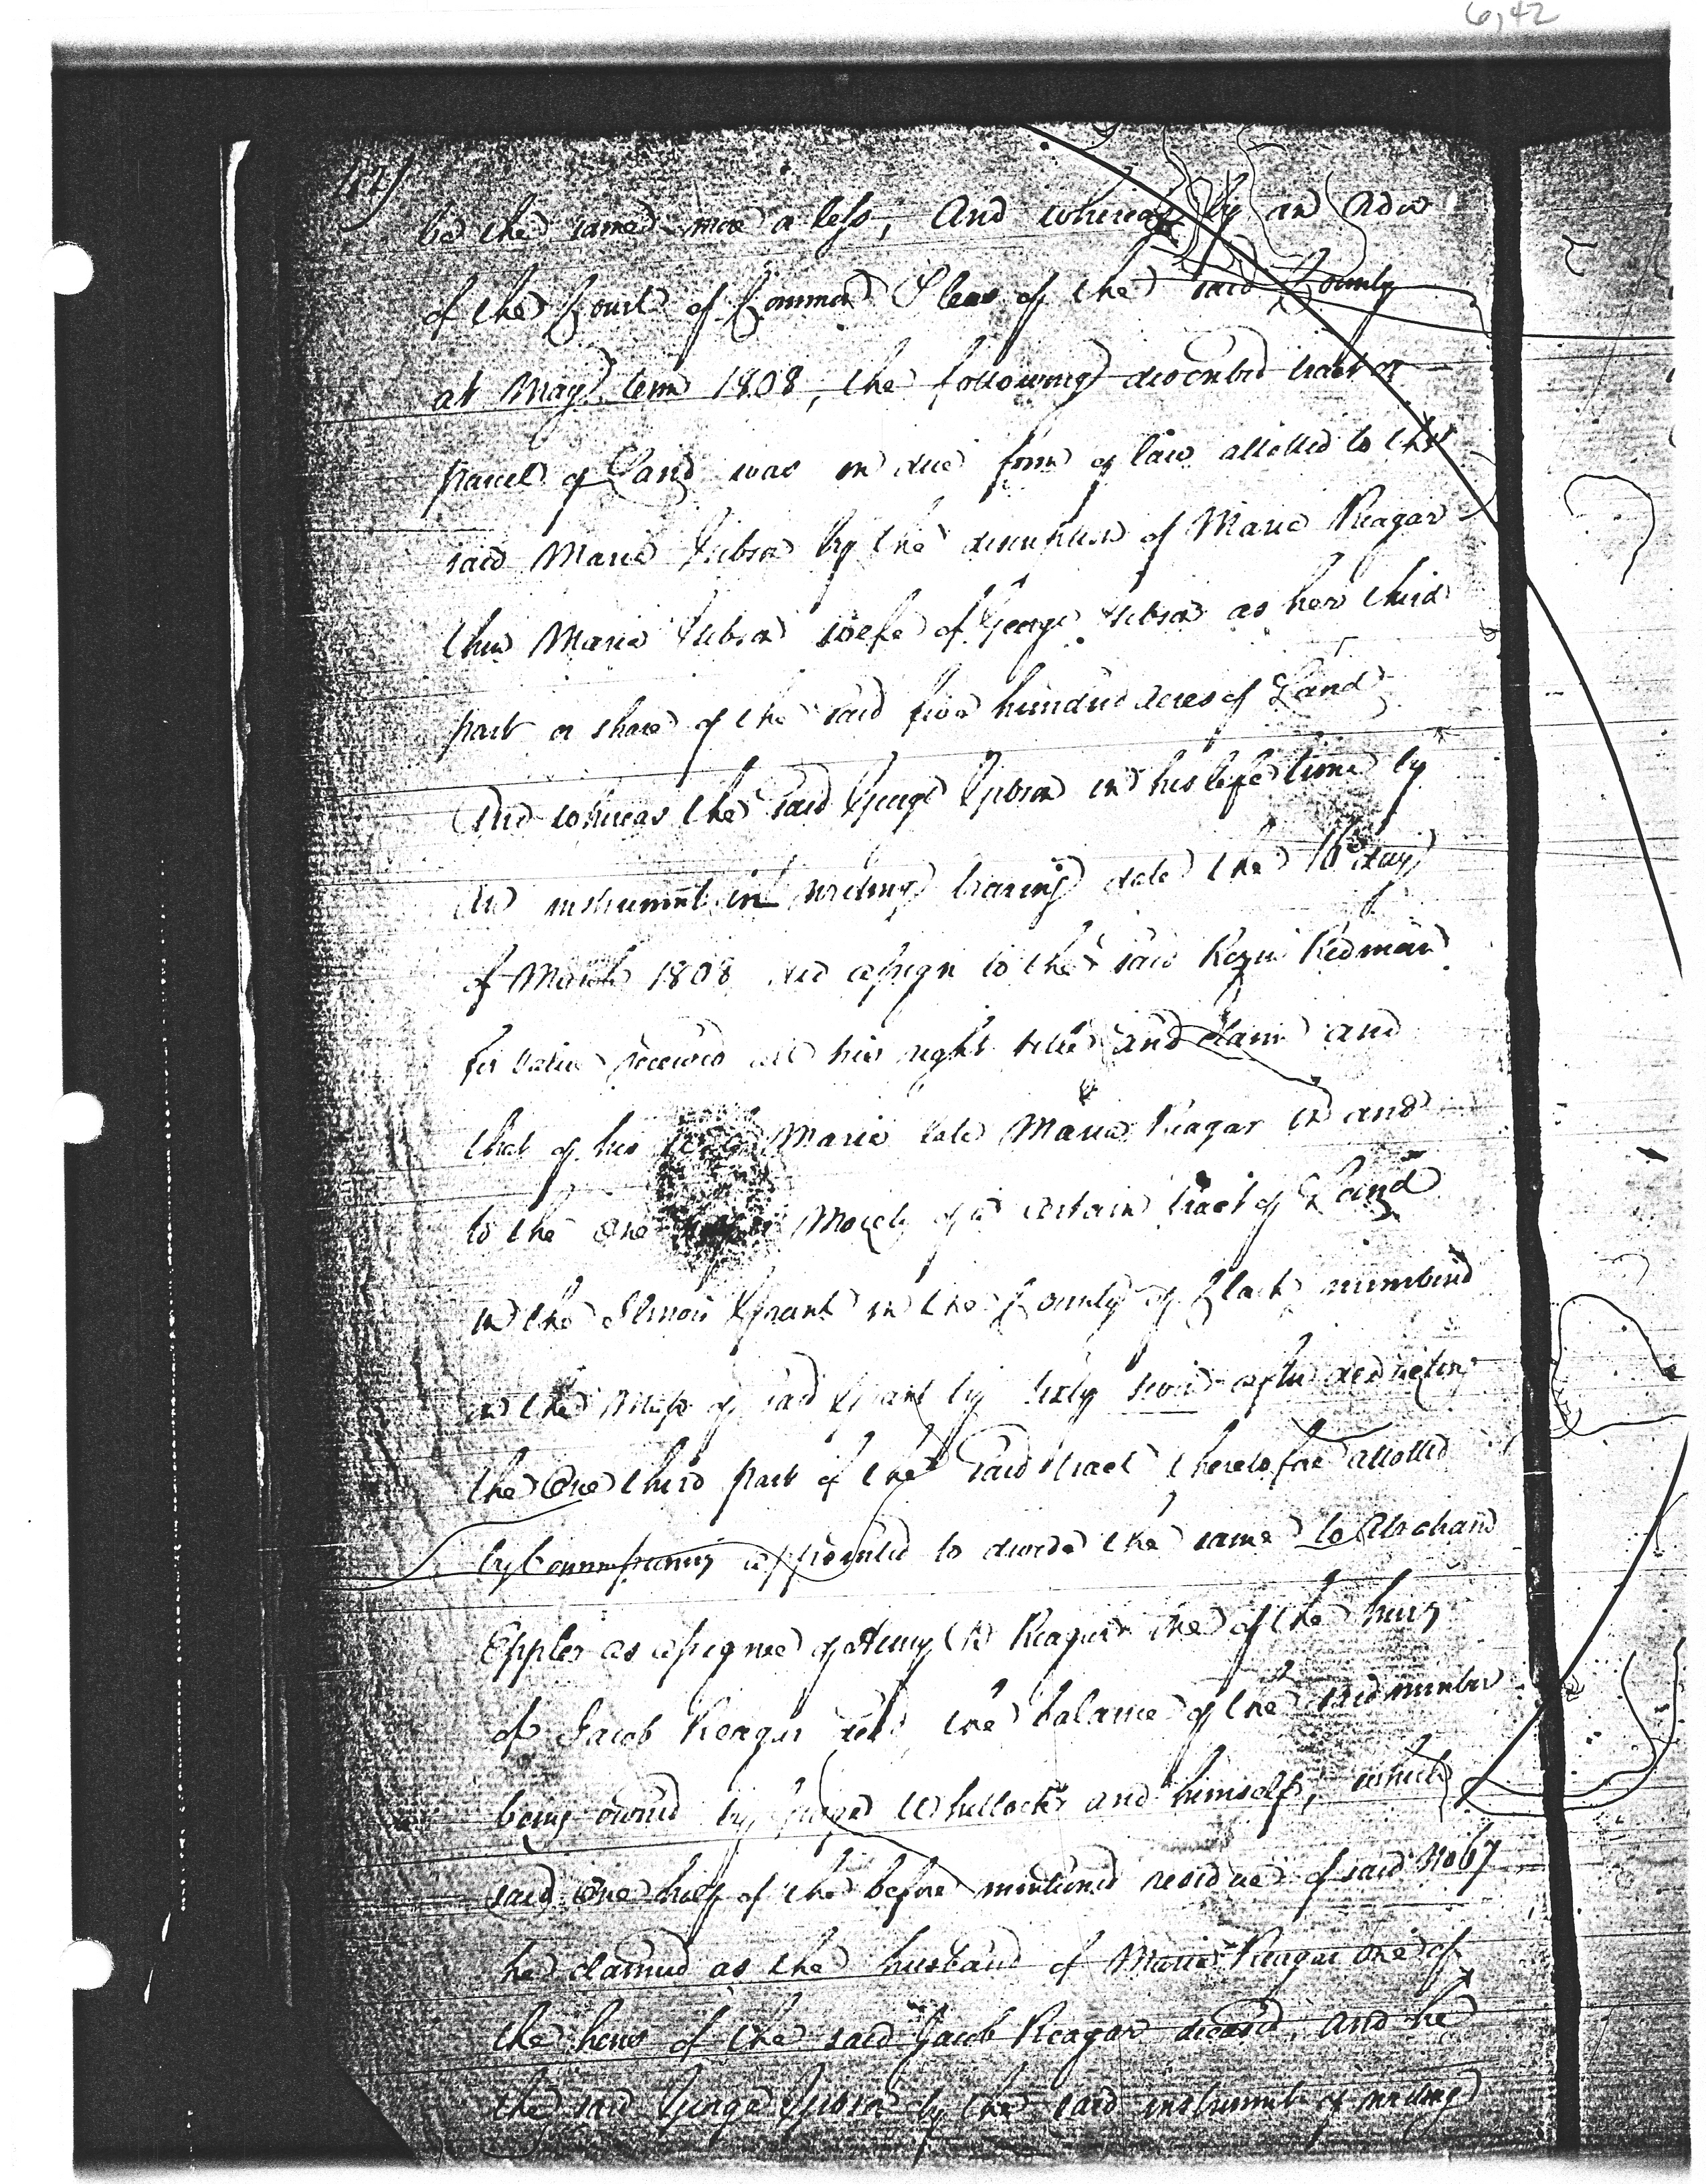 6,42
42)
be the same more or less, And whereas by an order
of the Court of Common Pleas of the said County
at May term 1808, the following described tract or
parcel of Land was in due form of law allotted to the
said Maria Gibson by the description of Maria Reagar
then Maria Gibson wife of George Gibson as her third
part or share of the said five hundred acres of Land
And whereas the said George Gibson in his life time by
an instrument in writing bearing date the 16th day
of March 1808 did assign to the said Rezin Redman
for value received all his right title and claim and
that of his wife Maria late Maria Reagar in and
to the one Moiety of a certain tract of Land
in the Illinois Grant in the County of Clark numbered
in the Map of said Grant by sixty seven after deducting
the One third part of the said tract theretofore allotted
by Commissioners appointed to divide the same to Abraham
Epler as assignee of Reagar one of the heirs
of Jacob Reagar decd, the balance of the said number
being owned by George Whillock and himself, which
said One half of the before mentioned residue of said No 67
he claimed as the husband of Maria Reagar one of
the heirs of the said Jacob Reagar deceased, and he
the said George Gibson by the said instrument of writing